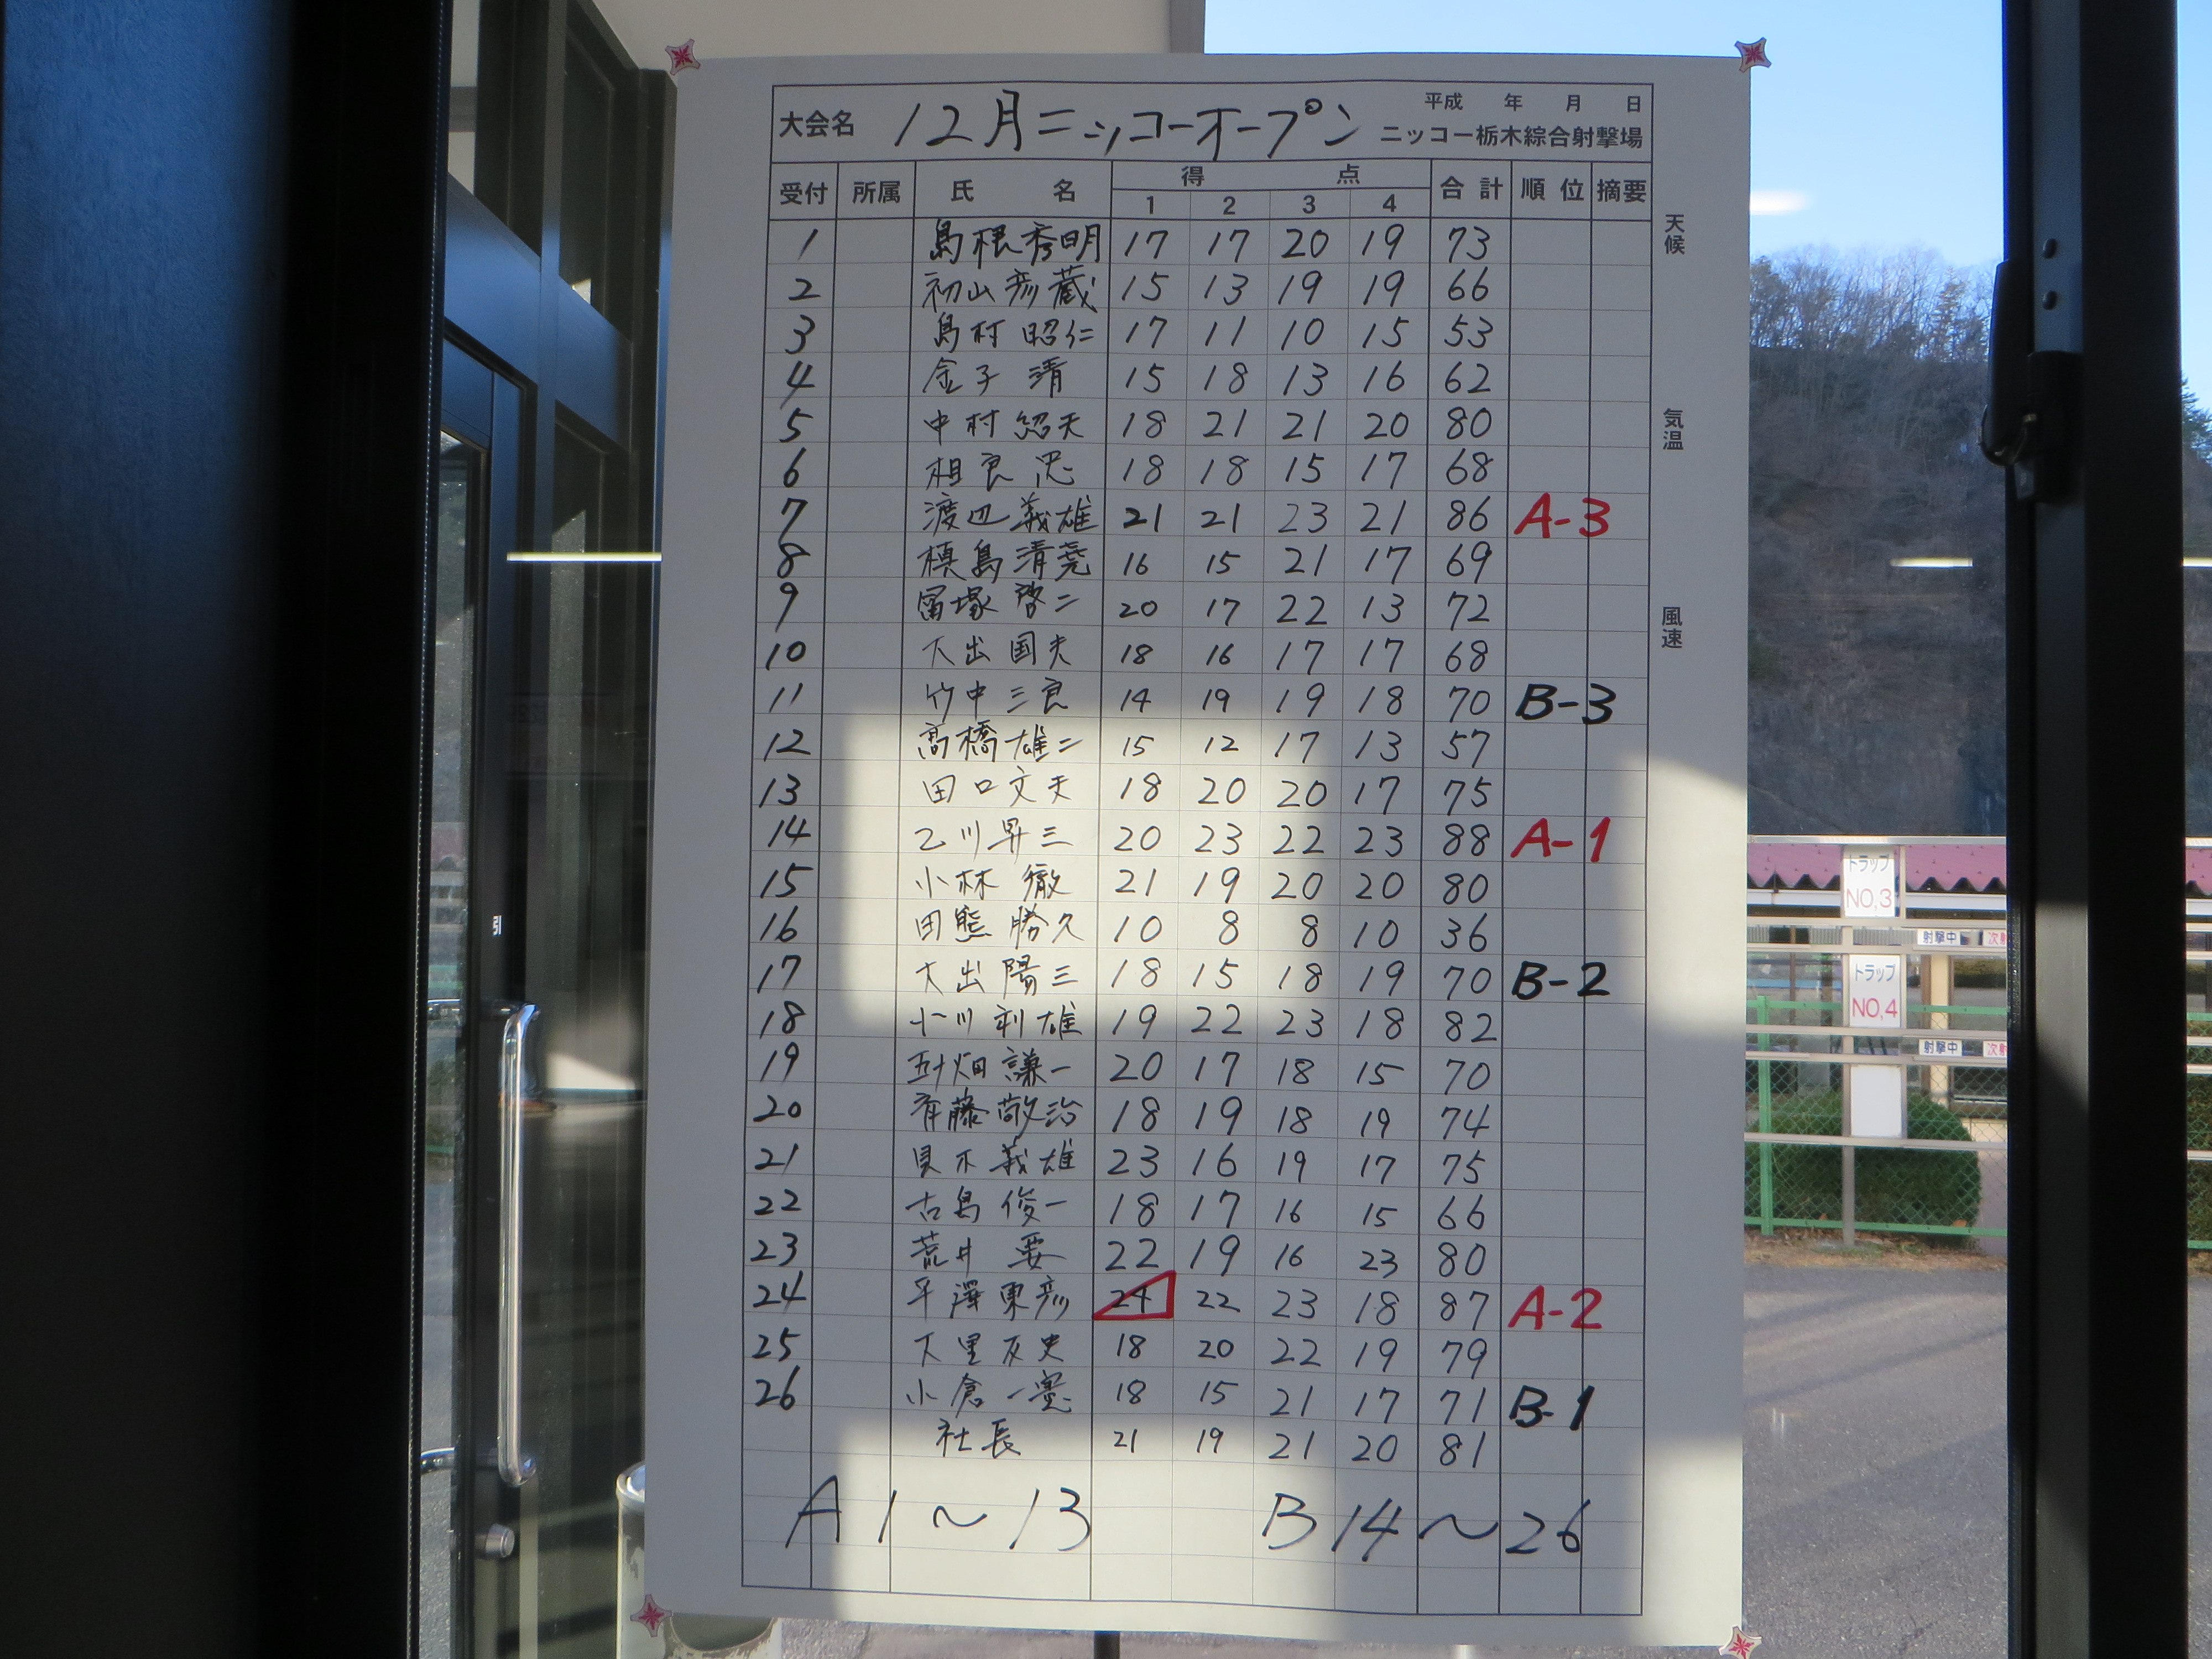 平成 年 月 日
大会名 12月ニッコーオープン ニッコー栃木綜合射撃場
受付 所属 氏名 得点 合計 順位 摘要
1 2 3 4
1 島根秀明 17 17 20 19 73
2 初山彦蔵 15 13 19 19 66
3 島村昭仁 17 11 10 15 53
4 金子清 15 18 13 16 62
5 中村紹夫 18 21 21 20 80
6 相良忠 18 18 15 17 68
7 渡辺義雄 21 21 23 21 86 A-3
8 槙島清尭 16 15 21 17 69
9 冨塚啓二 20 17 22 13 72
10 大出国夫 18 16 17 17 68
11 竹中三良 14 19 19 18 70 B-3
12 髙橋雄二 15 12 17 13 57
13 田口文夫 18 20 20 17 75
14 乙川昇三 20 23 22 23 88 A-1
15 小林徹 21 19 20 20 80
16 田熊勝久 10 8 8 10 36
17 大出陽三 18 15 18 19 70 B-2
18 小川利雄 19 22 23 18 82
19 五十畑謙一 20 17 18 15 70
20 斉藤敬治 18 19 18 19 74
21 義雄 23 16 19 17 75
22 古島俊一 18 17 16 15 66
23 荒井要 22 19 16 23 80
24 平澤東彦 24 22 23 18 87 A-2
25 大里友史 18 20 22 19 79
26 小倉一憲 18 15 21 17 71 B-1
社長 21 19 21 20 81
A 1〜13 B 14〜26
天候
気温
風速
引
トラップ
NO,3
射撃中
トラップ
NO,4
射撃中